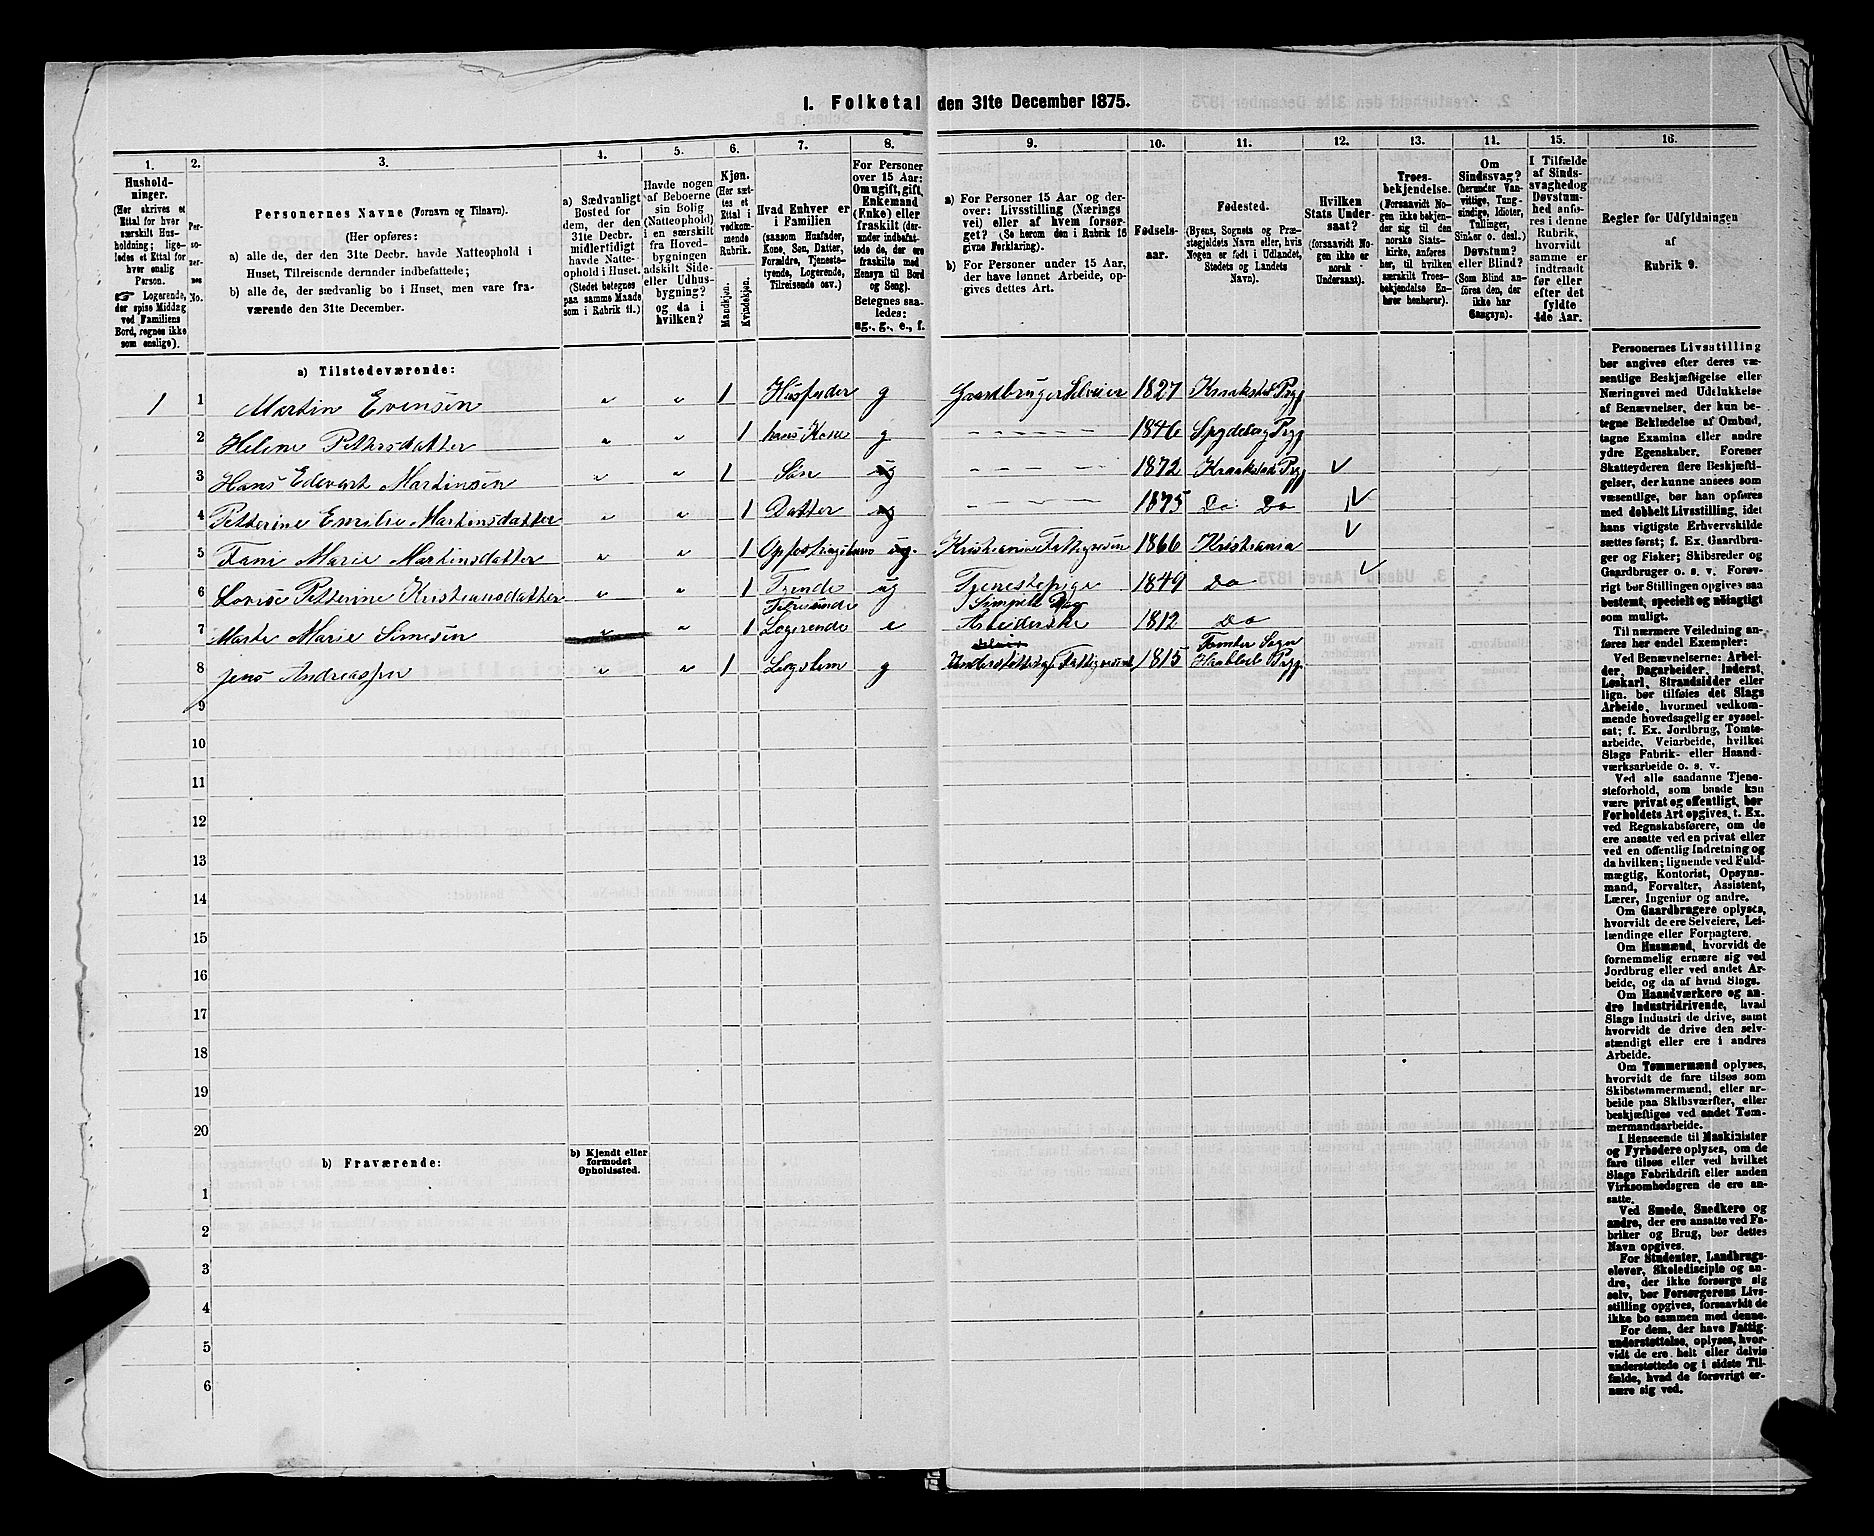 1. Folketal den 31te December 1875.
1. 2. 3. 4. 5. 6. 7. 8. 9. 10. 11. 12. 13. 14. 15. 16.
Hushold-
ninger.
(Her skrives et
Ettal for hver
særskilt Hus-
holdning; lige-
ledes et Ettal for
hver enslig
Person.
☞ Logerende,
der spise Middag
ved Familiens
Bord, regnes ikke
som enslige).
Per-
so-
ner-
nes
No.
Personernes Navne (Fornavn og Tilnavn).
(Her opføres:
a) alle de, der den 31te Decbr. havde Natteophold i
Huset, Tilreisende derunder indbefattede;
b) alle de, der sædvanlig bo i Huset, men vare fra-
værende den 31te December.
a) Sædvanligt
Bosted for
dem, der den
31te Decbr.
midlertidigt
havde Natte-
ophold i Huset.
(Stedet betegnes
paa samme Maade
som i Rubrik 11.)
Havde nogen
af Beboerne
sin Bolig
(Natteophold)
i en særskilt
fra Hoved-
bygningen
adskilt Side-
eller Udhus-
bygning?
og da i
hvilken?
Kjøn.
(Her sæt-
tes et
Ettal i
vedkom-
mende
Rubrik.
Mandkjøn.
Kvindekjøn.
Hvad Enhver er
i Familien
(saasom Husfader,
Kone, Søn, Datter,
Forældre, Tjeneste-
tyende, Logerende,
Tilreisende osv.)
For Personer
over 15 Aar:
Om ugift, gift,
Enkemand
(Enke) eller
fraskilt (der-
under indbefat-
tede de, der ere
fraskilte med
Hensyn til Bord
og Seng).
Betegnes saa-
ledes:
ug., g., e., f.
a) For Personer 15 Aar og der-
over: Livsstilling (Nærings-
vei) eller af hvem forsør-
get? (Se herom den i Rubrik 16
givne Forklaring).
b) For Personer under 15 Aar,
der have lønnet Arbeide, op-
gives dettes Art.
Fødsels-
aar.
Fødested.
(Byens, Sognets og Præ-
stegjeldets Navn eller, hvis
Nogen er født i Udlandet,
Stedets og Landets
Navn).
Hvilken
Stats Under-
saat?
(forsaavidt No-
gen ikke er
norsk
Undersaat).
Troes-
bekjendelse.
(Forsaavidt No-
gen ikke bekjen-
der sig til den
norske Stats-
kirke, anføres
her, til hvilken
særskilt Troes-
bekjendelse En-
hver henhører).
Om
Sindssvag?
(herunder Van-
vittige, Tung-
sindige, Idioter,
Tullinger,
Sinker o. desl.)
Døvstum?
eller Blind?
(Som Blind an-
føres den, der
ikke har
Gangsyn).
I Tilfælde
af Sinds-
svaghed og
Døvstum-
hed anfø-
res i denne
Rubrik,
hvorvidt
samme er
indtraadt
før eller
efter det
fyldte
4de Aar.
Regler for Udfyldningen
af
Rubrik 9.
a) Tilstedeværende:
1 1 Martin Evensen „ „ 1 Husfader g Gaardbruger Selveier 1827 Kraakstad Prgj
2 Helene Pettersdatter „ „ 1 hans Kone g – – – – – 1846 Spydeberg Prgj
3 Hans Edevart Martinsen „ „ 1 Søn ug – – – – – 1872 Kraakstad Prgj
4 Petterine Emilie Martinsdatter „ „ 1 Datter ug – – – – – 1875 Do Do
5 Fani Marie Martinsdatter „ „ 1 Opfostringsbarn ug. Kristiania Fattigvæsen 1866 Kristiania
6 Lovise Petterine Kristiansdatter „ „ 1 Tyende ug Tjenestepige 1849 Do
7 Marte Marie Simesen „ 1 Logerende e Arbeiderske 1812 Do
8 Jens Andreassen „ „ 1 Legslem g Understøttet af Fattigvæsenet 1815 Tomter Sogn Haabøl Prgj.
9
10
11
12
13
14
15
16
17
18
19
20
b) Fraværende:
b) Kjendt eller
formodet
Opholdssted.
1
2
3
4
5
6
Personernes Livsstilling
bør angives efter deres væ-
sentlige Beskjæftigelse eller
Næringsvei med Udelukkelse
af Benævnelser, der kun be-
tegne Beklædelse af Ombud,
tagne Examina eller andre
ydre Egenskaber. Forener
Skatteyderen flere Beskjæfti-
gelser, der kunne ansees som
væsentlige, bør han opføres
med dobbelt Livsstilling, idet
hans vigtigste Erhvervskilde
sættes først; f. Ex. Gaardbru-
ger og Fisker; Skibsreder og
Gaardbruger o. s. v. Forøv-
rigt bør Stillingen opgives saa
bestemt, specielt og nøiagtigt
som muligt.
Til nærmere Veiledning an-
føres her endel Exempler:
Ved Benævnelserne: Arbei-
der, Dagarbeider, Inderst,
Løskarl, Strandsidder eller
lign. bør tilføies det Slags
Arbeide, hvormed vedkom-
mende hovedsagelig er syssel-
sat; f. Ex. Jordbrug, Tomte-
arbeide, Veiarbeide, hvilket
Slags Fabrik- eller Haand-
værksarbeide o. s. v.
Ved alle saadanne Tjene-
steforhold, som baade kan
være privat og offentligt, bør
Forholdets Art opgives, t. Ex.
ved Regnskabsførere, om de
ere ansatte ved en privat eller
ved en offentlig Indretning og
da hvilken; lignende ved Fuld-
mægtig, Kontorist, Opsyns-
mand, Forvalter, Assistent,
Lærer, Ingeniør og andre.
Om Gaardbrugere oplyses,
hvorvidt de ere Selveiere, Lei-
lændinge eller Forpagtere.
Om Husmænd, hvorvidt de
fornemmelig ernære sig ved
Jordbrug eller ved andet Ar-
beide, og da af hvad Slags.
Om Haandværkere og an-
dre Industridrivende, hvad
Slags Industri de drive, samt
hvorvidt de drive den selv-
stændigt eller ere i andres
Arbeide.
Om Tømmermænd oplyses,
hvorvidt de fare tilsøs som
Skibstømmermænd, eller ar-
beide paa Skibsværfter, eller
beskjæftiges ved andet Tøm-
mermandsarbeide.
I Henseende til Maskinister
og Fyrbødere oplyses, om de
fare tilsøs eller ved hvilket
Slags Fabrikdrift eller anden
Virksomhedsgren de ere an-
satte.
Ved Smede, Snedkere og
andre, der ere ansatte ved Fa-
briker og Brug, bør dettes
Navn opgives.
For Studenter, Landbrugs-
elever, Skoledisciple og an-
dre, der ikke forsørge sig
selv, bør Forsørgerens Livs-
stilling opgives, forsaavidt de
ikke bo sammen med denne.
For dem, der have Fattig-
understøttelse, oplyses, hvor-
vidt de ere helt eller delvis
understøttede og i sidste Til-
fælde, hvad de forøvrigt er-
nære sig ved.